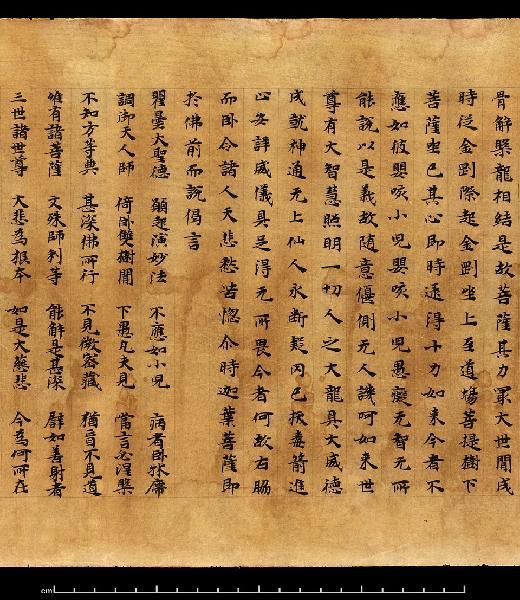 骨解槃龍相結是故菩薩其力冣大世間成
時從金剛際起金剛坐上至道場菩提樹下
菩薩坐已其心即時逮得十力如來今者不
應如彼嬰咳小兒嬰咳小兒愚癡无智无所
能說以是義故隨意偃側无人譏呵如來世
尊有大智慧照明一切人之大龍具大威德
成就神通无上仙人永斷疑网已拔毒箭進
止安詳威儀具足得无所畏今者何故右脇
而臥令諸人天悲愁苦惱尒時迦葉菩薩即
於佛前而說偈言
瞿曇大聖德 願起演妙法 不應如小兒 病者臥牀席
調御天人師 倚臥雙樹間 下愚凡夫見 當言必涅槃
不知方等典 甚深佛所行 不見微密藏 猶盲不見道
唯有諸菩薩 文殊師利等 能解是甚深 譬如善射者
三世諸世尊 大悲為根本 如是大慈悲 今為何所在
cm